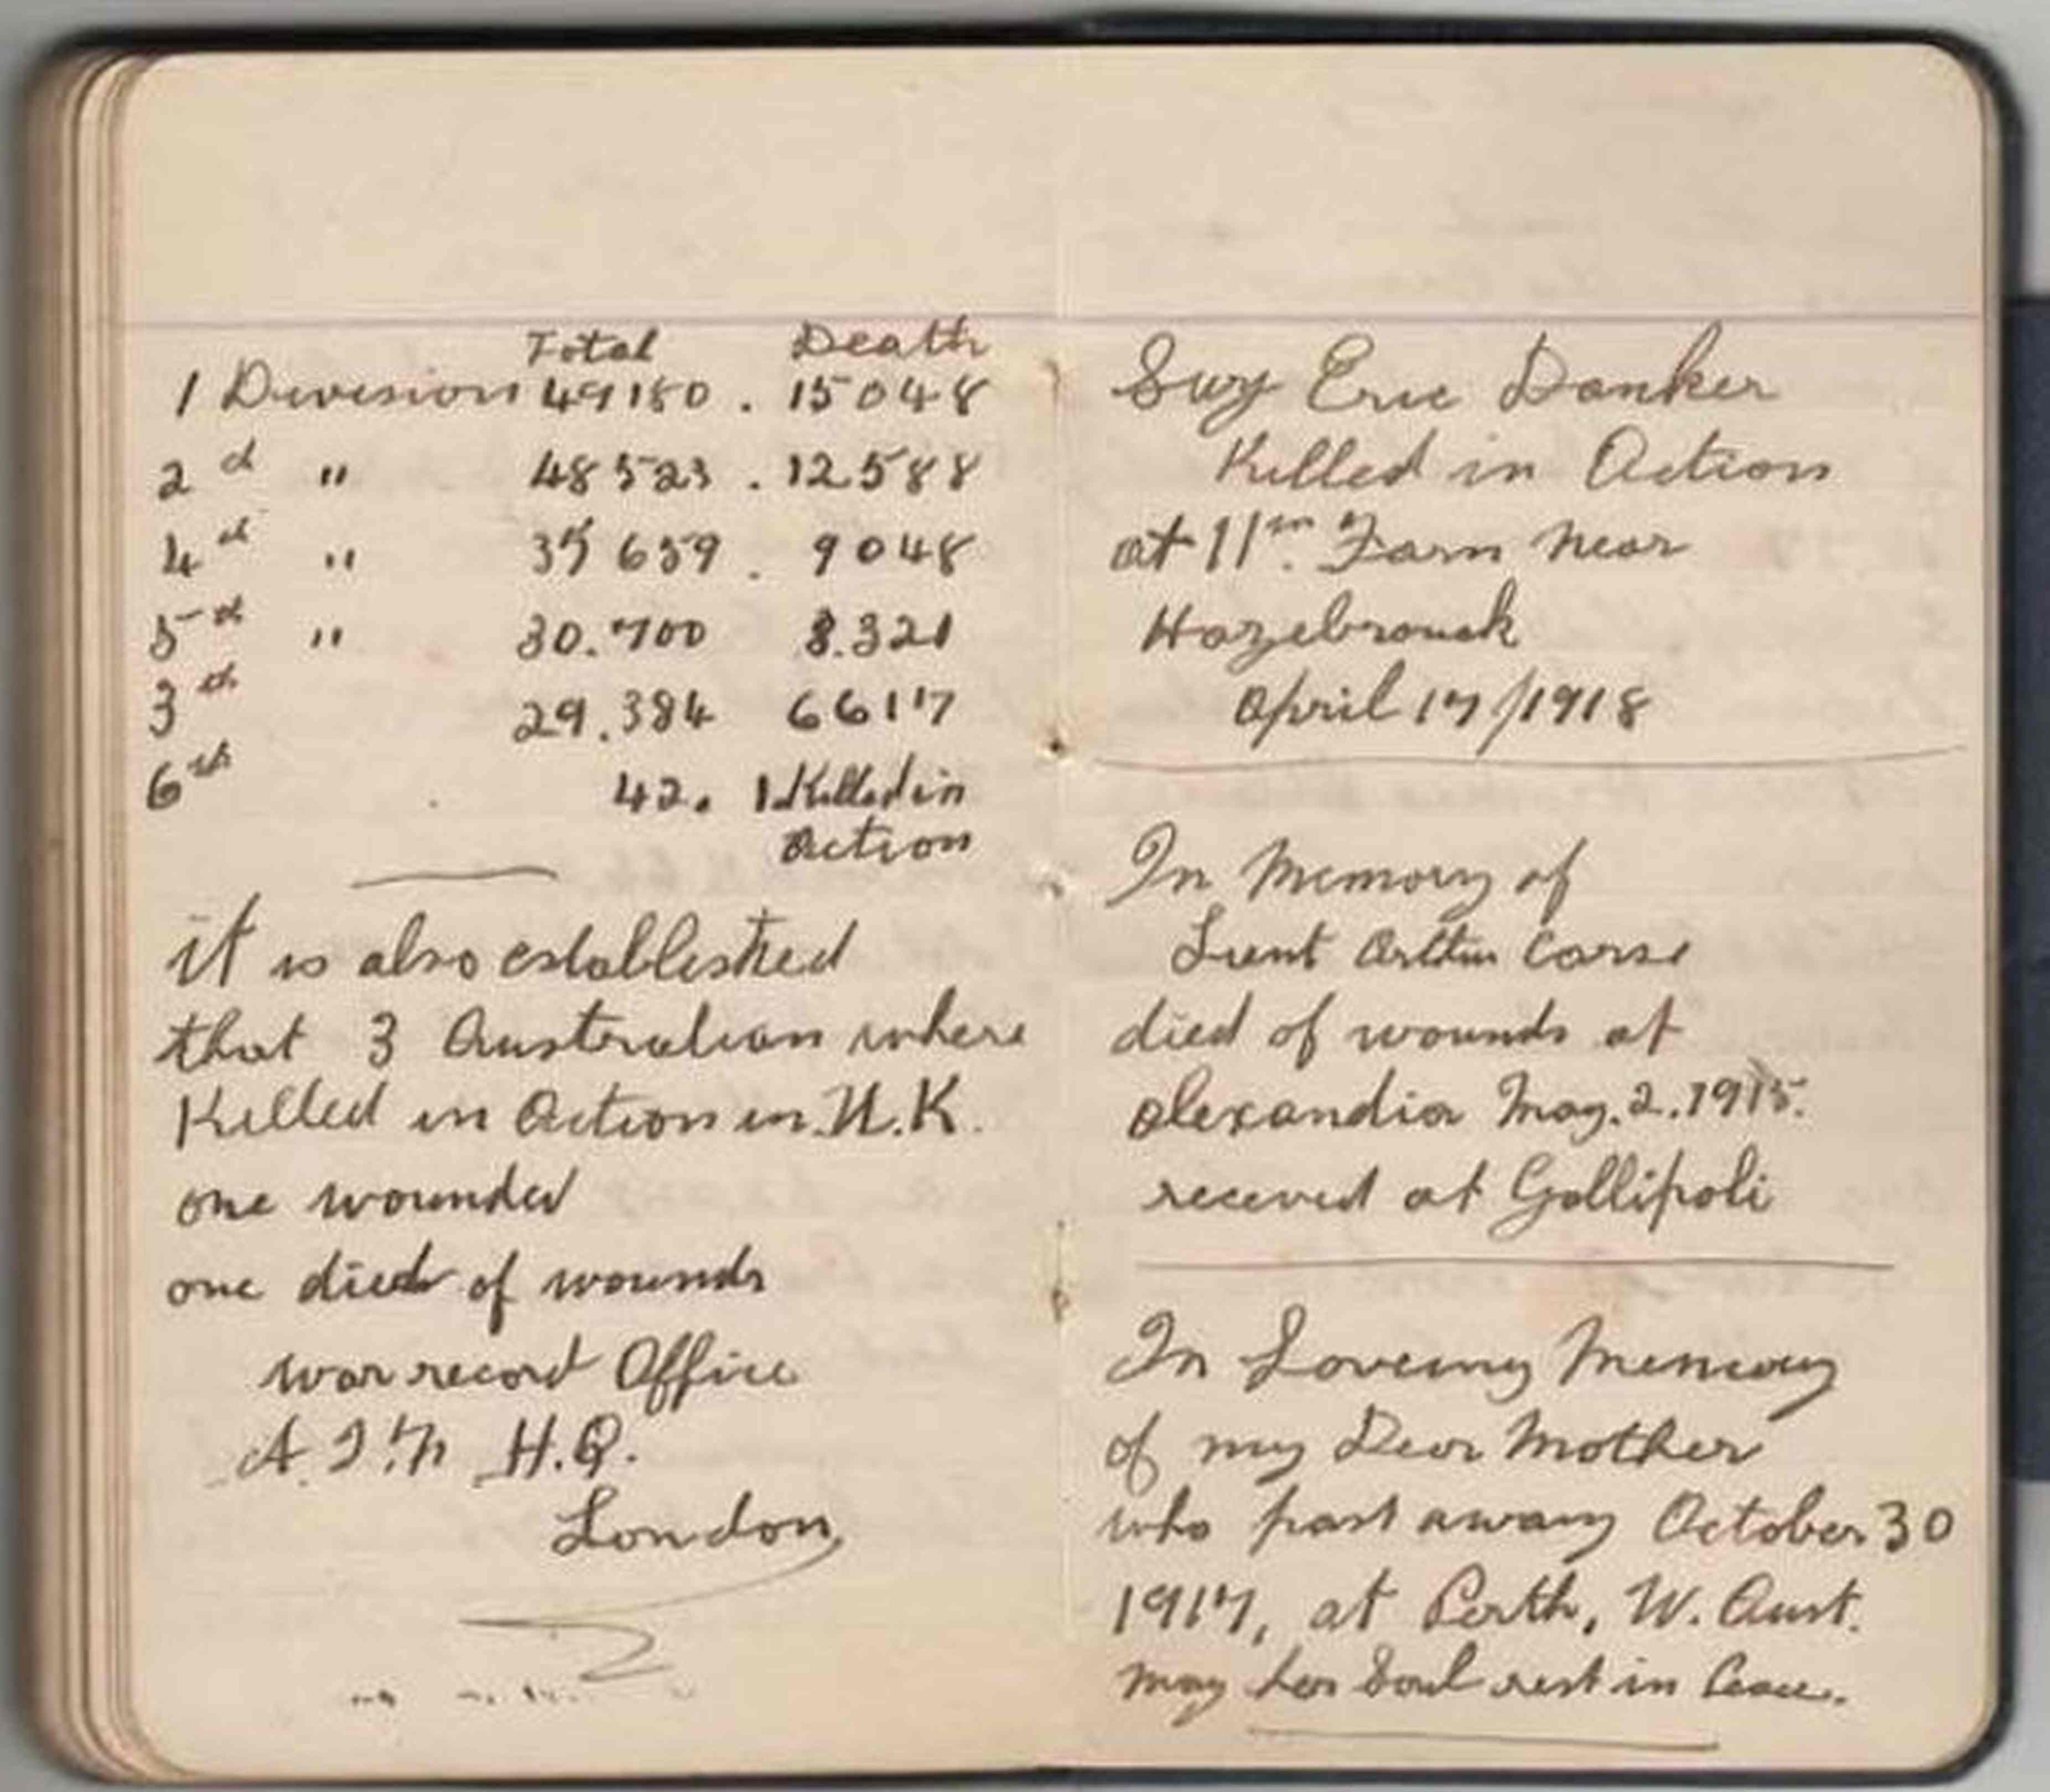 Total Death
1 Division 49180 . 15048
2d " 48523 . 12588
4th " 37659 . 9048
5th " 30.700 8.321
3th 29.384 6617
6th 42. 1 Killed in
Action
it is also established
that 3 Australian where
Killed in Action in U.K.
one wounded
one died of wounds
War record Office
A.I.F. H.Q.
London
Eric Danker
Killed in Action
at Farm Near
Hazebrouck
April 17/1918
In Memory of
Lieut Arthur Corse
died of wounds at
Alexandia May. 2. 1915.
received at Gallipoli
In Loveing Memory
of my Dear Mother
who past away October 30
1917, at Perth, W. Aust.
May her Soul rest in Peace.